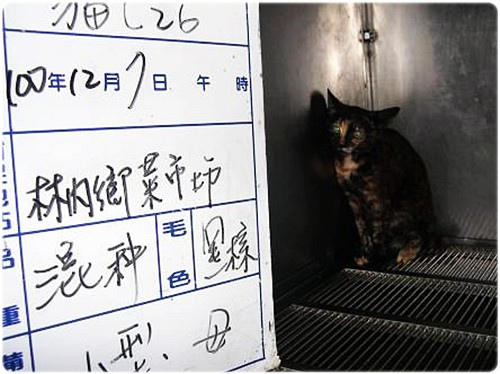 貓 L26
100年12月7日 午 時
林內鄉菜市場
名 混種 毛色 黑棕
重 小型、母